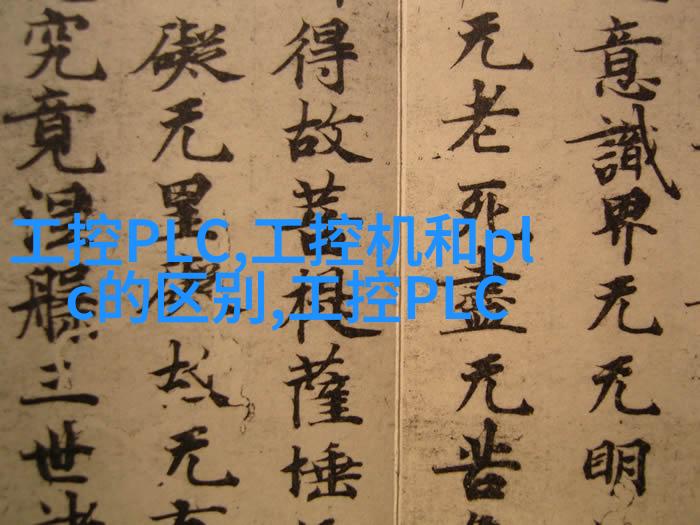 工控PLC,工控机和pl
c的区别,工控PLC
意識界无无明
无老死盡无苦
得故菩提薩埵
礙无罣礙故无有
究竟涅槃三世諸